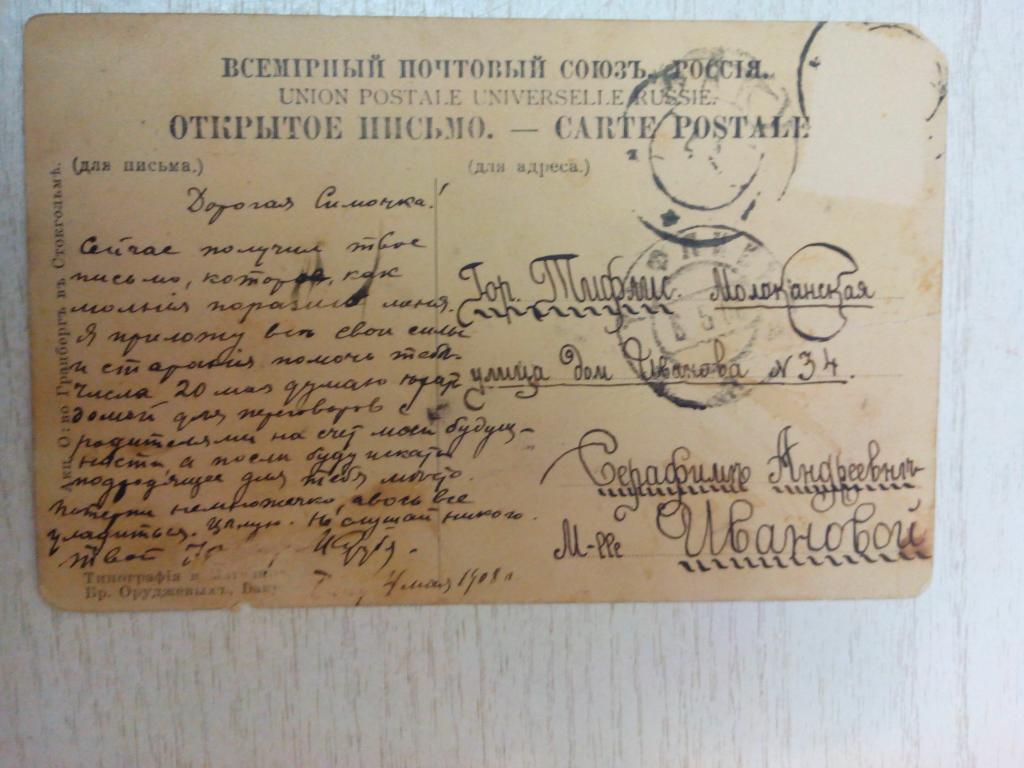 ВСЕМІРНЫЙ ПОЧТОВЫЙ СОЮЗЪ. РОССІЯ.
UNION POSTALE UNIVERSELLE RUSSIE.
ОТКРЫТОЕ ПИСЬМО. — CARTE POSTALE
(для письма.)
(для адреса.)
Акц. О:во Гранбергъ въ Стокгольмѣ.
Дорогая Симочка!
Сейчас получил твое
письмо, которое, как
молнія поразило меня.
Я приложу всѣ свои силы
и старанія помочь тебѣ.
Числа 20 мая думаю
домой для переговоров с
родителями на счет моей будущ-
ности, а послѣ буду искать
подходящее для тебя мѣсто.
Потерпи немножечко, авось все
уладиться. Цѣлую. Не слушай никого.
Твой
4 мая 1908 г.
Типографія и
Бр. Оруджевыхъ, Баку
Гор. Тифлис. Молоканская
улица дом Иванова № 34.
Серафимѣ Андреевнѣ
М-lle Ивановой